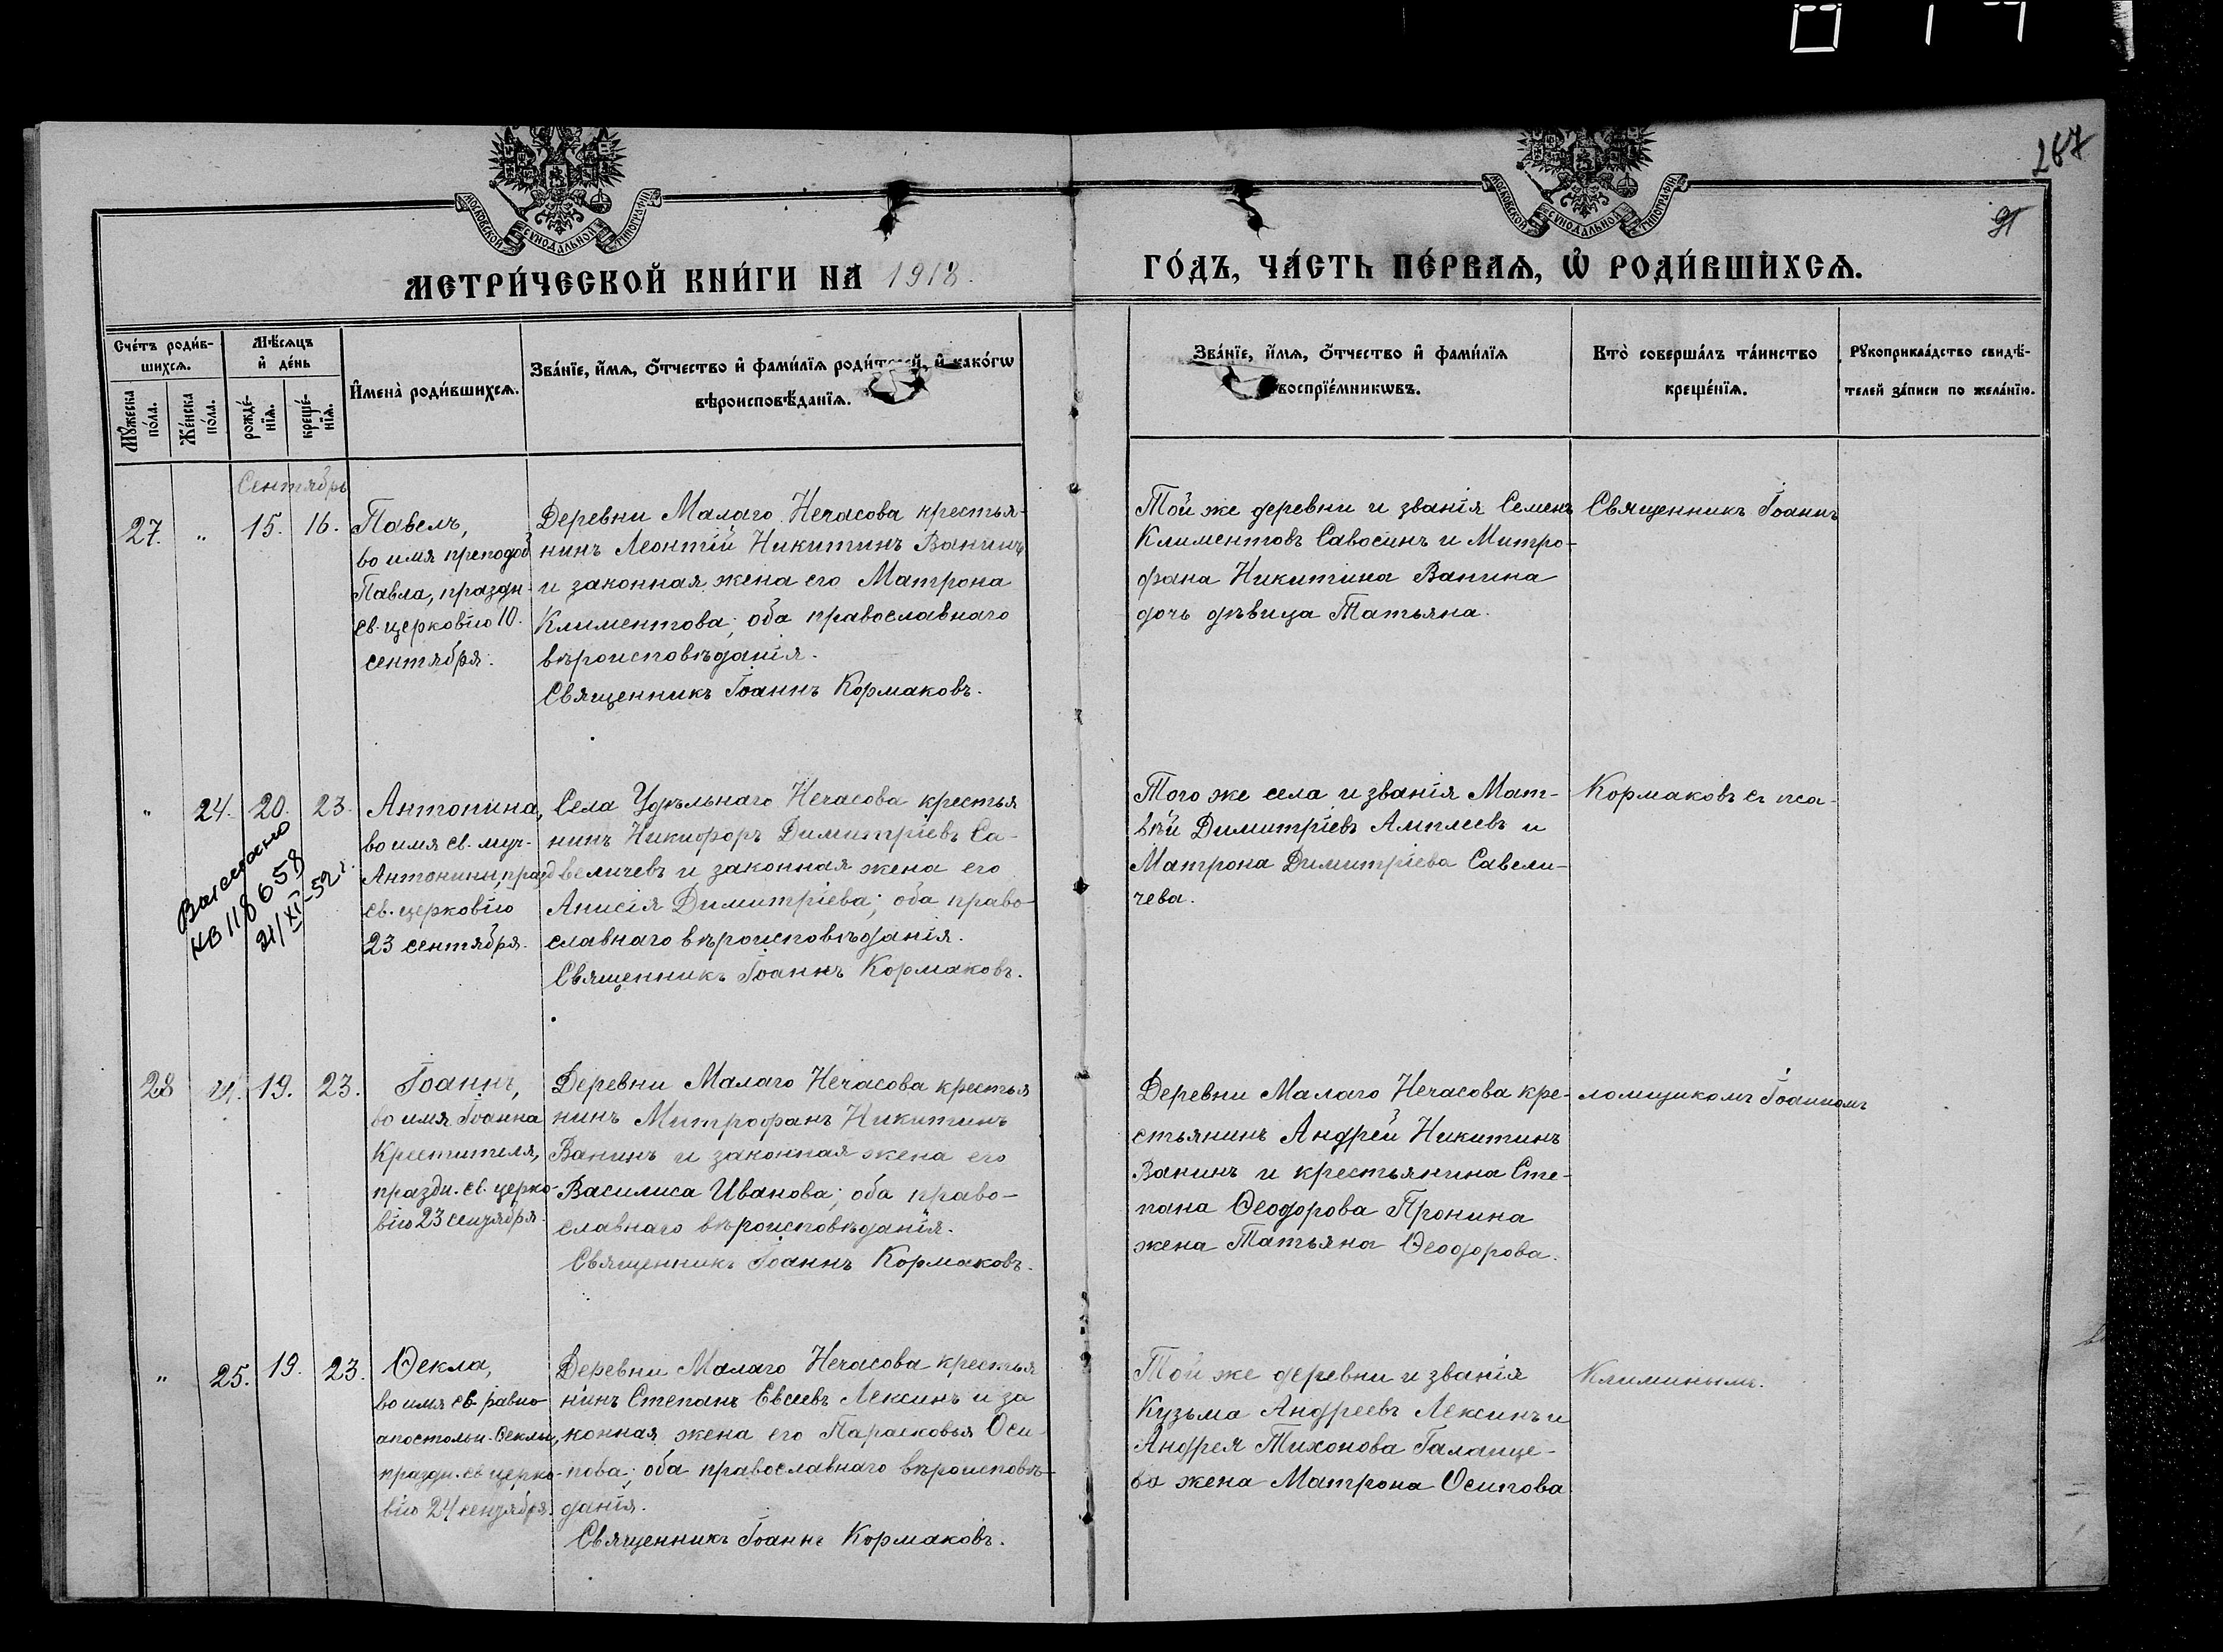 267
МОСКОВСКОЙ СУНОДАЛЬНОЙ ТИПОГРАФІИ
МОСКОВСКОЙ СУНОДАЛЬНОЙ ТИПОГРАФІИ
МЕТРИ́ЧЕСКОЙ КНИ́ГИ НА 1918.
ГО́ДЪ, ЧА́СТЬ ПЕ́РВАѦ, Ѡ҆ РОДИ́ВШИХСѦ.
Сче́тъ роди́в-
шихсѧ.
Мꙋ́жеска
по́ла.
Же́нска
по́ла.
Мѣ́сѧцъ
и҆ де́нь
рожде́-
нїѧ.
креще́-
нїѧ.
И҆мена̀ роди́вшихсѧ.
Зва́нїе, и҆́мѧ, ѻ҆́тчество и҆ фами́лїѧ роди́телей, и҆ како́гѡ
вѣроисповѣ́данїѧ.
Зва́нїе, и҆́мѧ, ѻ҆́тчество и҆ фами́лїѧ
воспрїе́мникѡвъ.
Кто̀ соверша́лъ та́инство
креще́нїѧ.
Рꙋкоприкла́дство свидѣ́-
телей за́писи по жела́нїю.
Сентябрь
27. " 15. 16.
Павелъ,
во имя преподоб
Павла, праздн.
св. церковію 10.
сентября.
Деревни Малаго Нечасова крестья-
нинъ Леонтій Никитинъ Ванинъ
и законная жена его Матрона
Климентова; оба православнаго
вѣроисповѣданія.
Священникъ Іоаннъ Кормаковъ.
Той же деревни и званія Семенъ
Климентовъ Савосинъ и Митро-
фана Никитина Ванина
дочь дѣвица Татьяна.
Священникъ Іоаннъ
" 24. 20. 23.
Выслано
НВ 118658
21/XI-52 г.
Антонина,
во имя св. муч.
Антонины, празд
св. церковію
23 сентября.
Села Удѣльнаго Нечасова крестья
нинъ Никифоръ Димитріевъ Са-
величевъ и законная жена его
Анисія Димитріева; оба право-
славнаго вѣроисповѣданія.
Священникъ Іоаннъ Кормаковъ.
Того же села и званія Мат-
вѣй Димитріевъ Амплеевъ и
Матрона Димитріева Савели-
чева.
Кормаковъ съ пса-
28 19. 23.
Іоаннъ,
во имя Іоанна
Крестителя,
праздн. св. церко-
вію 23 сентября.
Деревни Малаго Нечасова крестья
нинъ Митрофанъ Никитинъ
Ванинъ и законная жена его
Василиса Иванова; оба право-
славнаго вѣроисповѣданія.
Священникъ Іоаннъ Кормаковъ.
Деревни Малаго Нечасова кре-
стьянинъ Андрей Никитинъ
Ванинъ и крестьянина Сте-
пана Ѳеодорова Пронина
жена Татьяна Ѳеодорова.
ломщикомъ Іоанномъ
" 25. 19. 23.
Ѳекла,
во имя св. равно-
апостольн. Ѳеклы,
праздн. св. церко-
вію 24 сентября.
Деревни Малаго Нечасова крестья
нинъ Степанъ Евсеевъ Лексинъ и за
конная жена его Парасковья Оси-
пова; оба православнаго вѣроисповѣ-
данія.
Священникъ Іоаннъ Кормаковъ.
Той же деревни и званія
Кузьма Андреевъ Лексинъ и
Андрея Тихонова Галанце-
ва жена Матрона Осипова
Климинымъ.